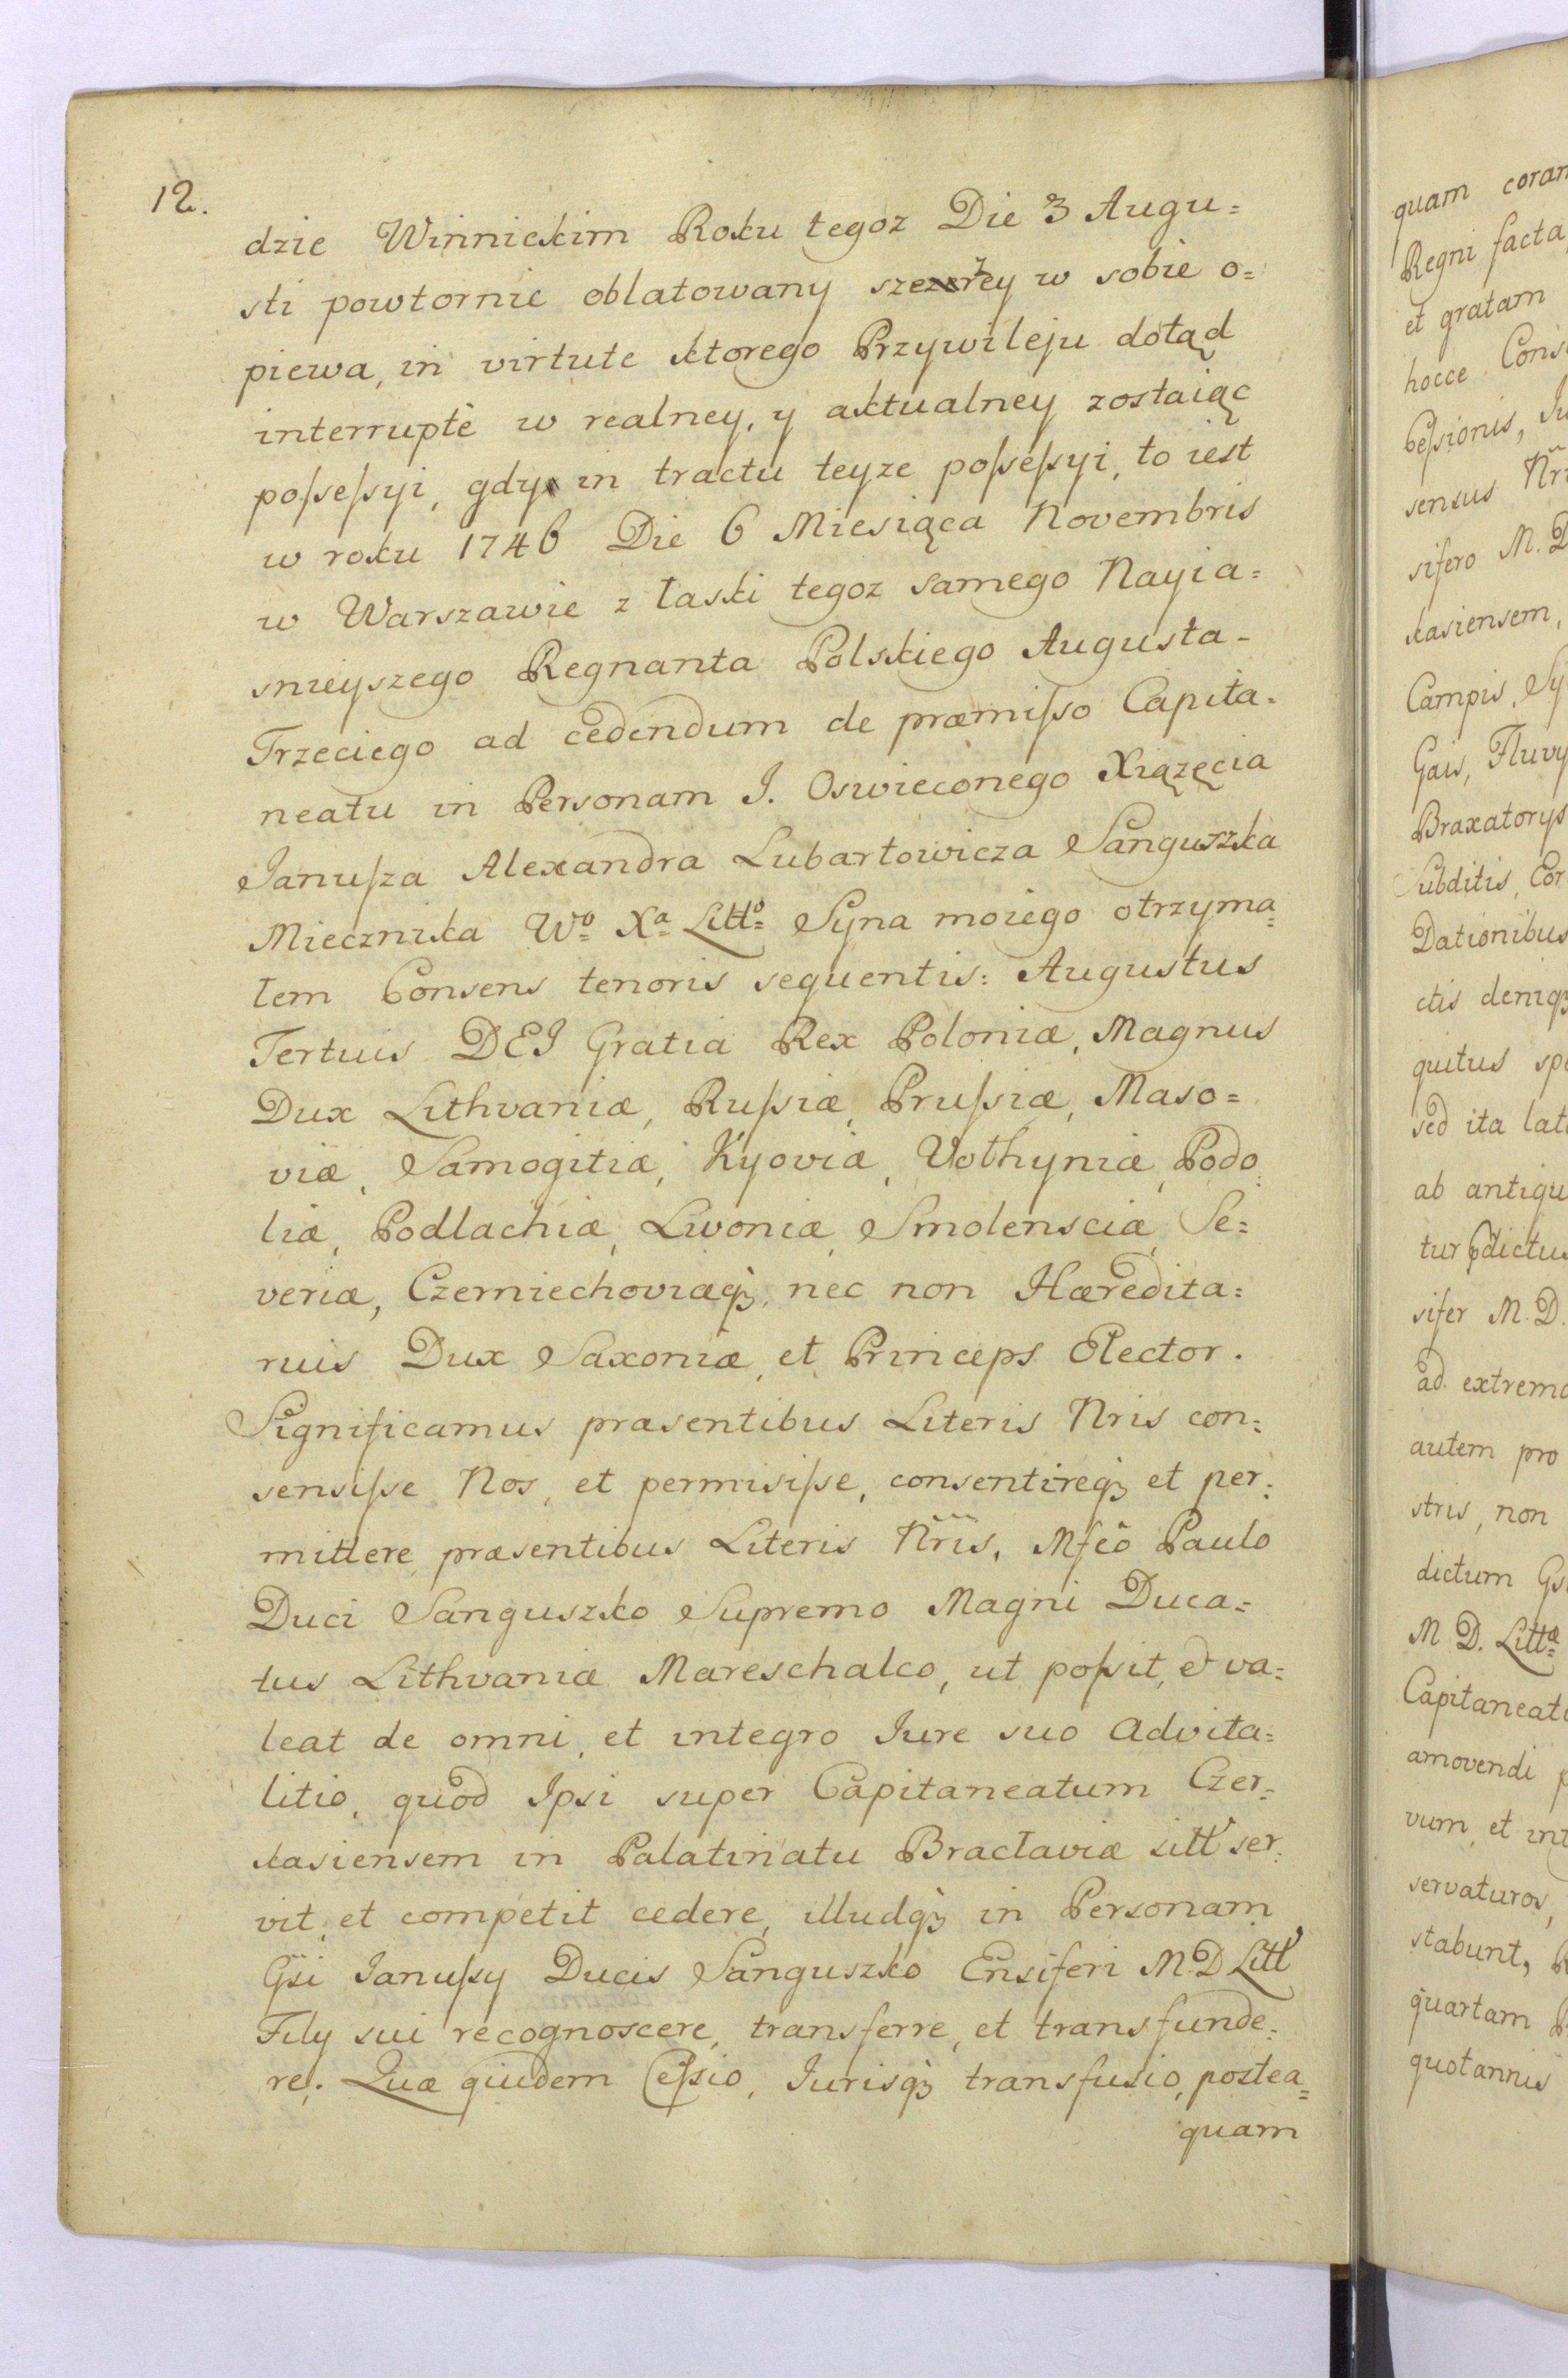 12.
dzie Winnickim Roku tegoz Die 3 Augu=
sti powtornie oblatowany w sobie o=
piewa, in virtute ktorego Przywileju dotąd
interruptè w realney, y aktualney zostaiąc
poſseſsyi, gdy in tractu teyze poſseſsyi, to iest
w roku 1746 Die 6 Miesiąca Novembris
w Warszawie z łaski tegoz samego Nayia=
snieyszego Regnanta Polskiego Augusta-
Trzeciego ad cedendum de præmiſso Capita=
neatu in Personam J. Oswieconego Xiązęcia
Januſza Alexandra Lubartowicza Sanguszka
Miecznika Wº Xª Littº Syna moiego otrzyma=
łem Consens tenoris sequentis: Augustus
Tertuis DEI Gratia Rex Poloniæ, Magnus
Dux Lithvaniæ, Ruſsiæ, Pruſsiæ, Maso=
viæ, Samogitiæ, Kyoviæ, Volhyniæ, Podo=
liæ, Podlachiæ, Livoniæ, Smolensciæ, Se=
veriæ, Czerniechoviæqꝫ, nec non Hæredita=
riuis Dux Saxoniæ, et Princeps Elector.
Significamus præsentibus Literis Nris con=
sensiſse Nos, et permisiſse, consentireqꝫ et per=
mittere præsentibus Literis Nris, Mfcô Paulo
Duci Sanguszko Supremo Magni Duca=
tus Lithvaniæ Mareschalco, ut poſsit, & va=
leat de omni, et integro Jure suo Advita=
litio, quod Ipsi super Capitaneatum Czer=
kasiensem in Palatinatu Bracłaviæ sitt' ser=
vit, et competit cedere, illudqꝫ in Personam
Gsi Januſsy Ducis Sanguszko Ensiferi M.D Litt'
Fily sui recognoscere, transferre, et transfunde=
re. Quæ quidem Ceſsio, Jurisqꝫ transfusio, postea=
quam
quam coram
Regni facta
et gratam
hocce Cons
Ceſsionis, Ju
sensus Nri
sifero M. D
kasiensem,
Campis, Sy
Gais, Fluvy
Braxatorys
Subditis, Cor
Dationibus
ctis deniqꝫ
quitus spe
sed ita lat
ab antiqu
sifer M. D.
ad extrema
autem pro
stris, non
dictum Gs
M D. Littæ
Capitaneatu
amovendi p
vum, et int
servaturos,
stabunt, R
quartam
quotannis